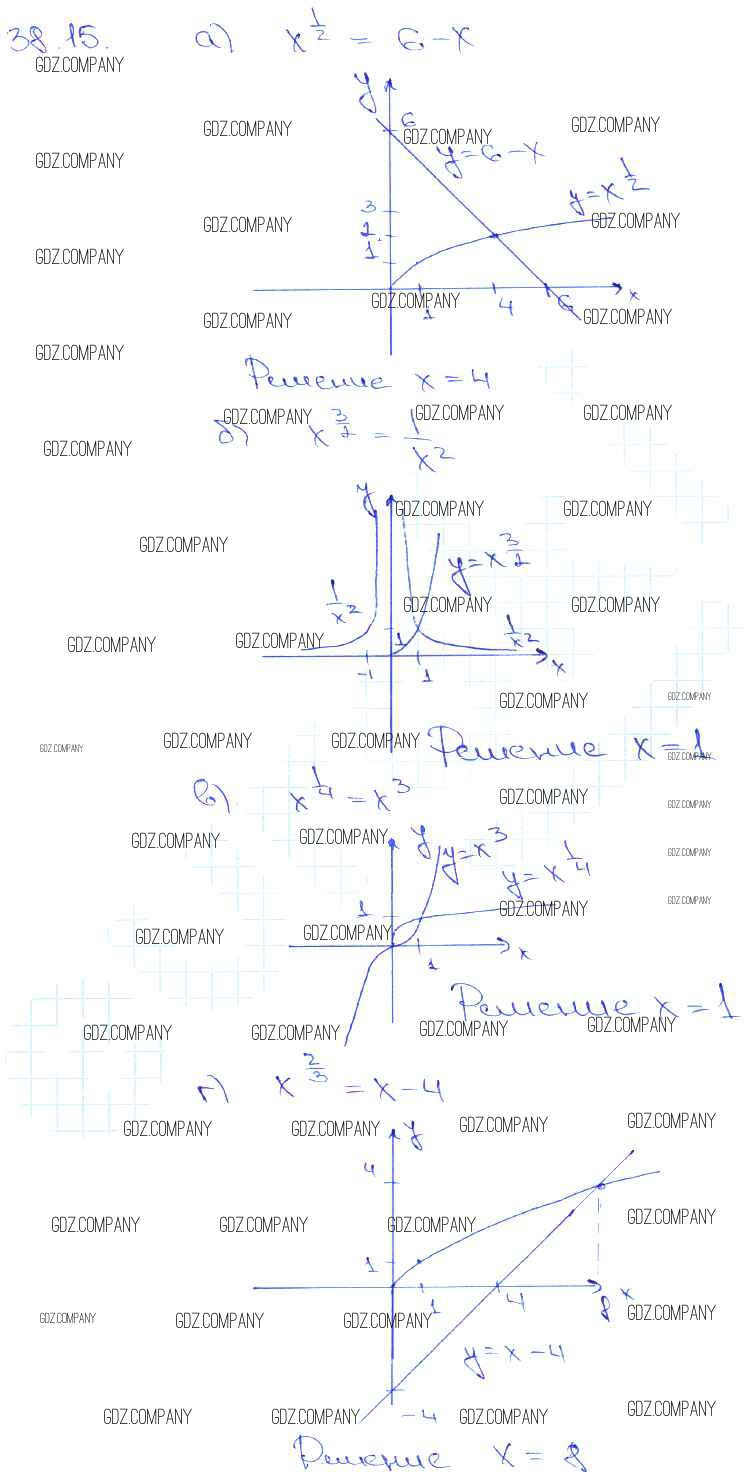 38.15. а) x^{1/2} = 6 - x
GDZ.COMPANY
y
6
GDZ.COMPANY GDZ.COMPANY GDZ.COMPANY
y = 6 - x
GDZ.COMPANY
y = x^{1/2}
3
GDZ.COMPANY GDZ.COMPANY
2
1
GDZ.COMPANY
GDZ.COMPANY GDZ.COMPANY GDZ.COMPANY
1 4 6 x
GDZ.COMPANY
Решение x = 4
GDZ.COMPANY GDZ.COMPANY GDZ.COMPANY
б) x^{3/2} = 1/x^2
GDZ.COMPANY
y
GDZ.COMPANY GDZ.COMPANY
GDZ.COMPANY
y = x^{3/2}
1/x^2
GDZ.COMPANY GDZ.COMPANY
GDZ.COMPANY GDZ.COMPANY 1 1/x^2
-1 1 x
GDZ.COMPANY GDZ.COMPANY
GDZ.COMPANY GDZ.COMPANY GDZ.COMPANY
Решение x = 1
GDZ.COMPANY
в) x^{1/4} = x^3
GDZ.COMPANY GDZ.COMPANY
GDZ.COMPANY GDZ.COMPANY
y y = x^3
GDZ.COMPANY
y = x^{1/4}
GDZ.COMPANY
1 GDZ.COMPANY
GDZ.COMPANY GDZ.COMPANY
1 x
Решение x = 1
GDZ.COMPANY GDZ.COMPANY GDZ.COMPANY GDZ.COMPANY
г) x^{2/3} = x - 4
GDZ.COMPANY GDZ.COMPANY GDZ.COMPANY GDZ.COMPANY
y
4
GDZ.COMPANY GDZ.COMPANY GDZ.COMPANY GDZ.COMPANY
1
1 4 8 x
GDZ.COMPANY GDZ.COMPANY GDZ.COMPANY GDZ.COMPANY
y = x - 4
-4
GDZ.COMPANY GDZ.COMPANY GDZ.COMPANY GDZ.COMPANY
Решение x = 8